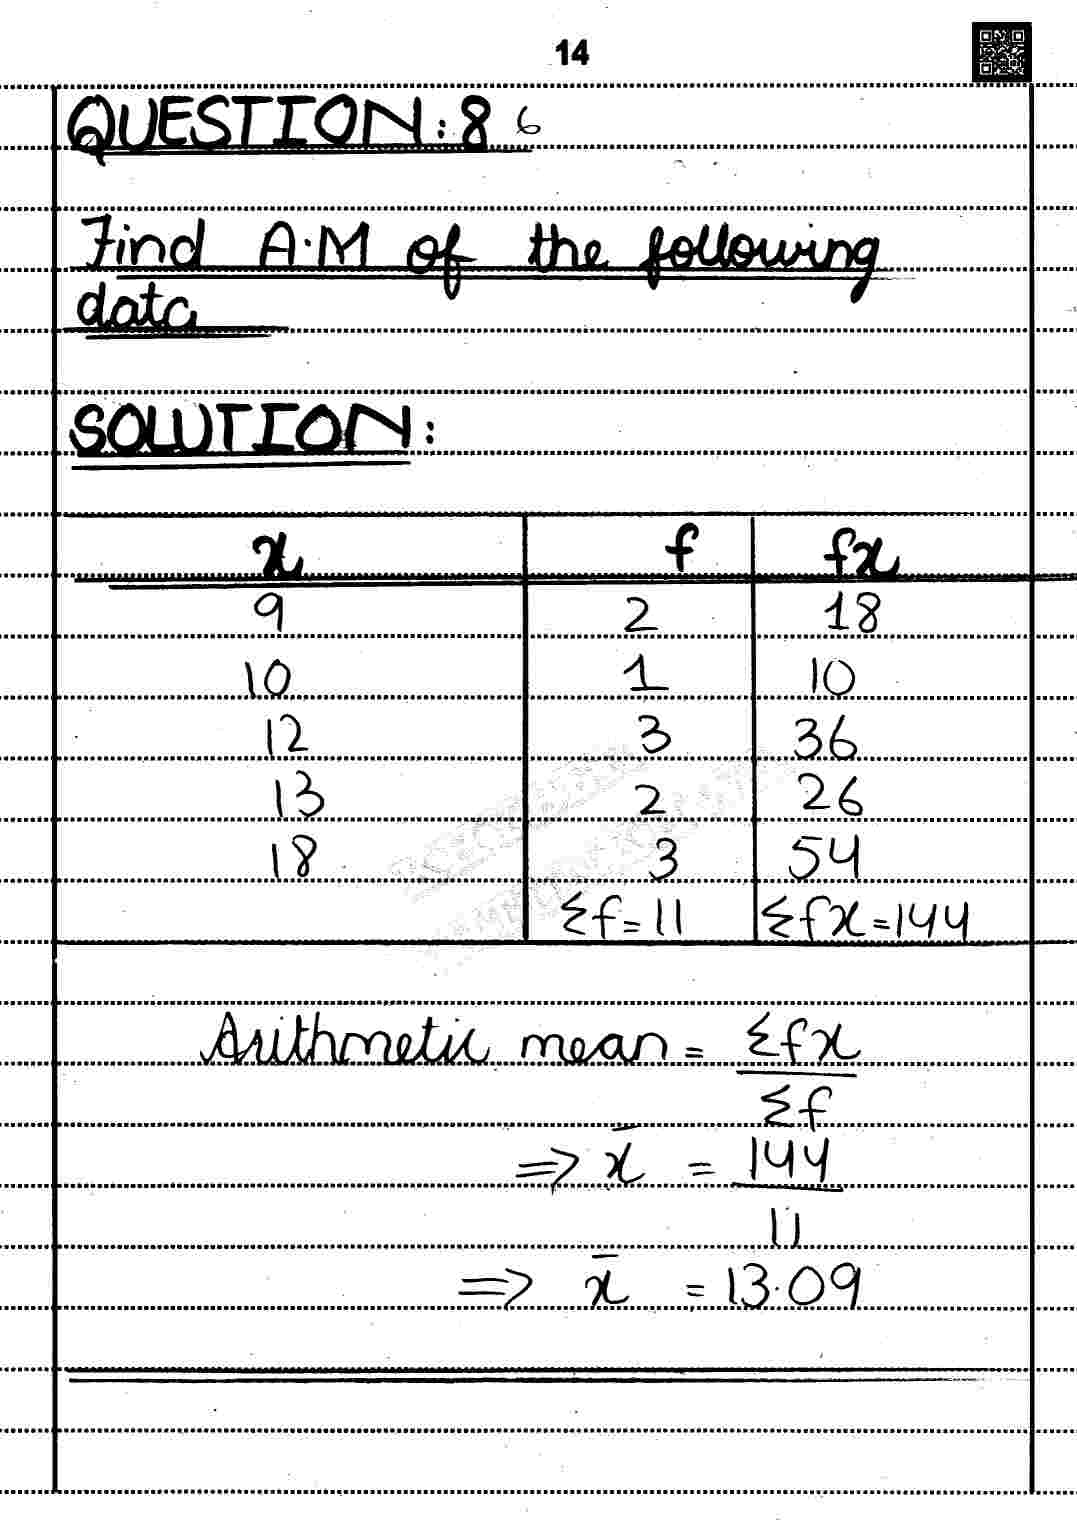 14
QUESTION:8 6
Find A.M of the following
data
SOLUTION:
x f fx
9 2 18
10 1 10
12 3 36
13 2 26
18 3 54
Σf=11 Σfx=144
Arithmetic mean = Σfx
Σf
⇒ x̄ = 144
11
⇒ x̄ = 13.09